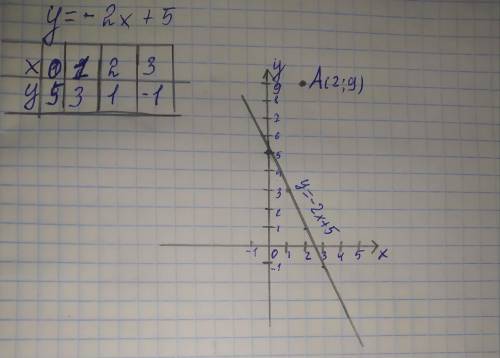 y = -2x + 5
x 0 1 2 3
y 5 3 1 -1
y
A(2;9)
9
8
7
6
5
4
3
2
1
y=-2x+5
-1 0 1 2 3 4 5 x
-1